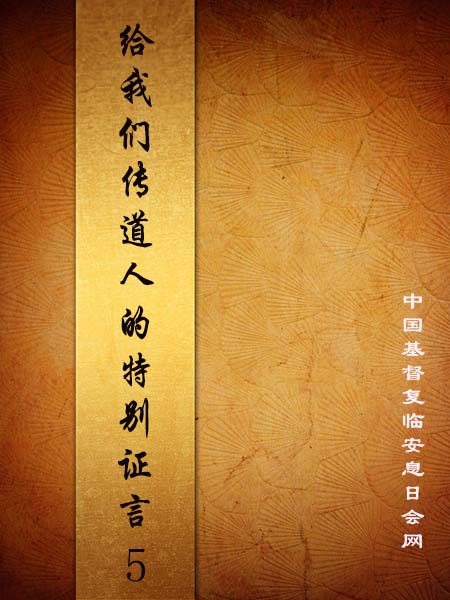 给我们传道人的特别证言5
中国基督复临安息日会网